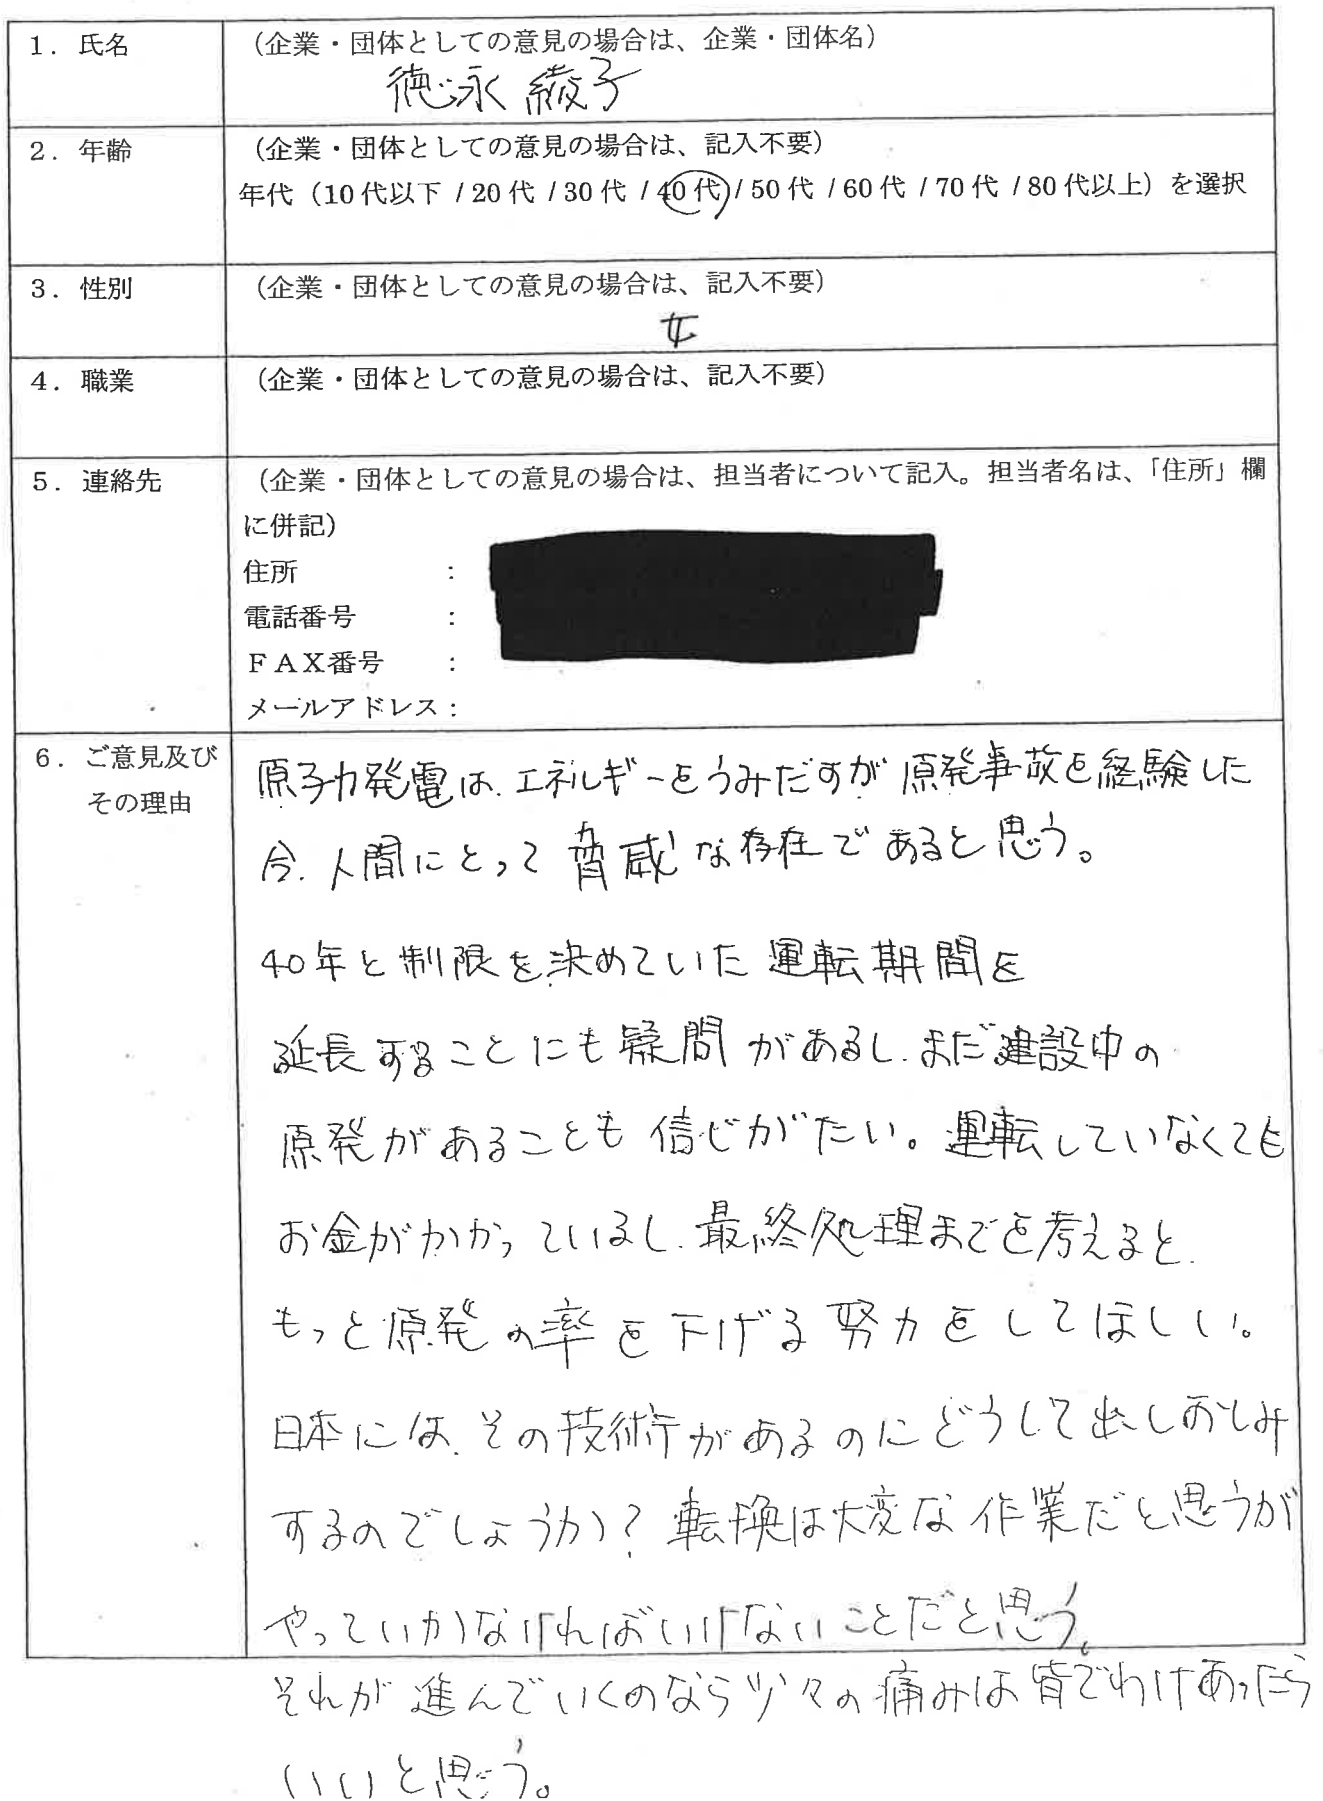 1．氏名
（企業・団体としての意見の場合は、企業・団体名）
徳永 綾子
2．年齢
（企業・団体としての意見の場合は、記入不要）
年代（10代以下 / 20代 / 30代 / 40代 / 50代 / 60代 / 70代 / 80代以上）を選択
3．性別
（企業・団体としての意見の場合は、記入不要）
女
4．職業
（企業・団体としての意見の場合は、記入不要）
5．連絡先
（企業・団体としての意見の場合は、担当者について記入。担当者名は、「住所」欄
に併記）
住所　　　　　：
電話番号　　　：
ＦＡＸ番号　　：
メールアドレス：
6．ご意見及び
その理由
原子力発電は、エネルギーをうみだすが原発事故を経験した
今、人間にとって脅威な存在であると思う。
40年と制限を決めていた運転期間を
延長することにも疑問があるし、まだ建設中の
原発があることも信じがたい。運転していなくても
お金がかかっているし、最終処理までを考えると、
もっと原発の率を下げる努力をしてほしい。
日本には、その技術があるのにどうして出しおしみ
するのでしょうか？転換は大変な作業だと思うが
やっていかなければいけないことだと思う。
それが進んでいくのなら少々の痛みは皆でわけあったら
いいと思う。